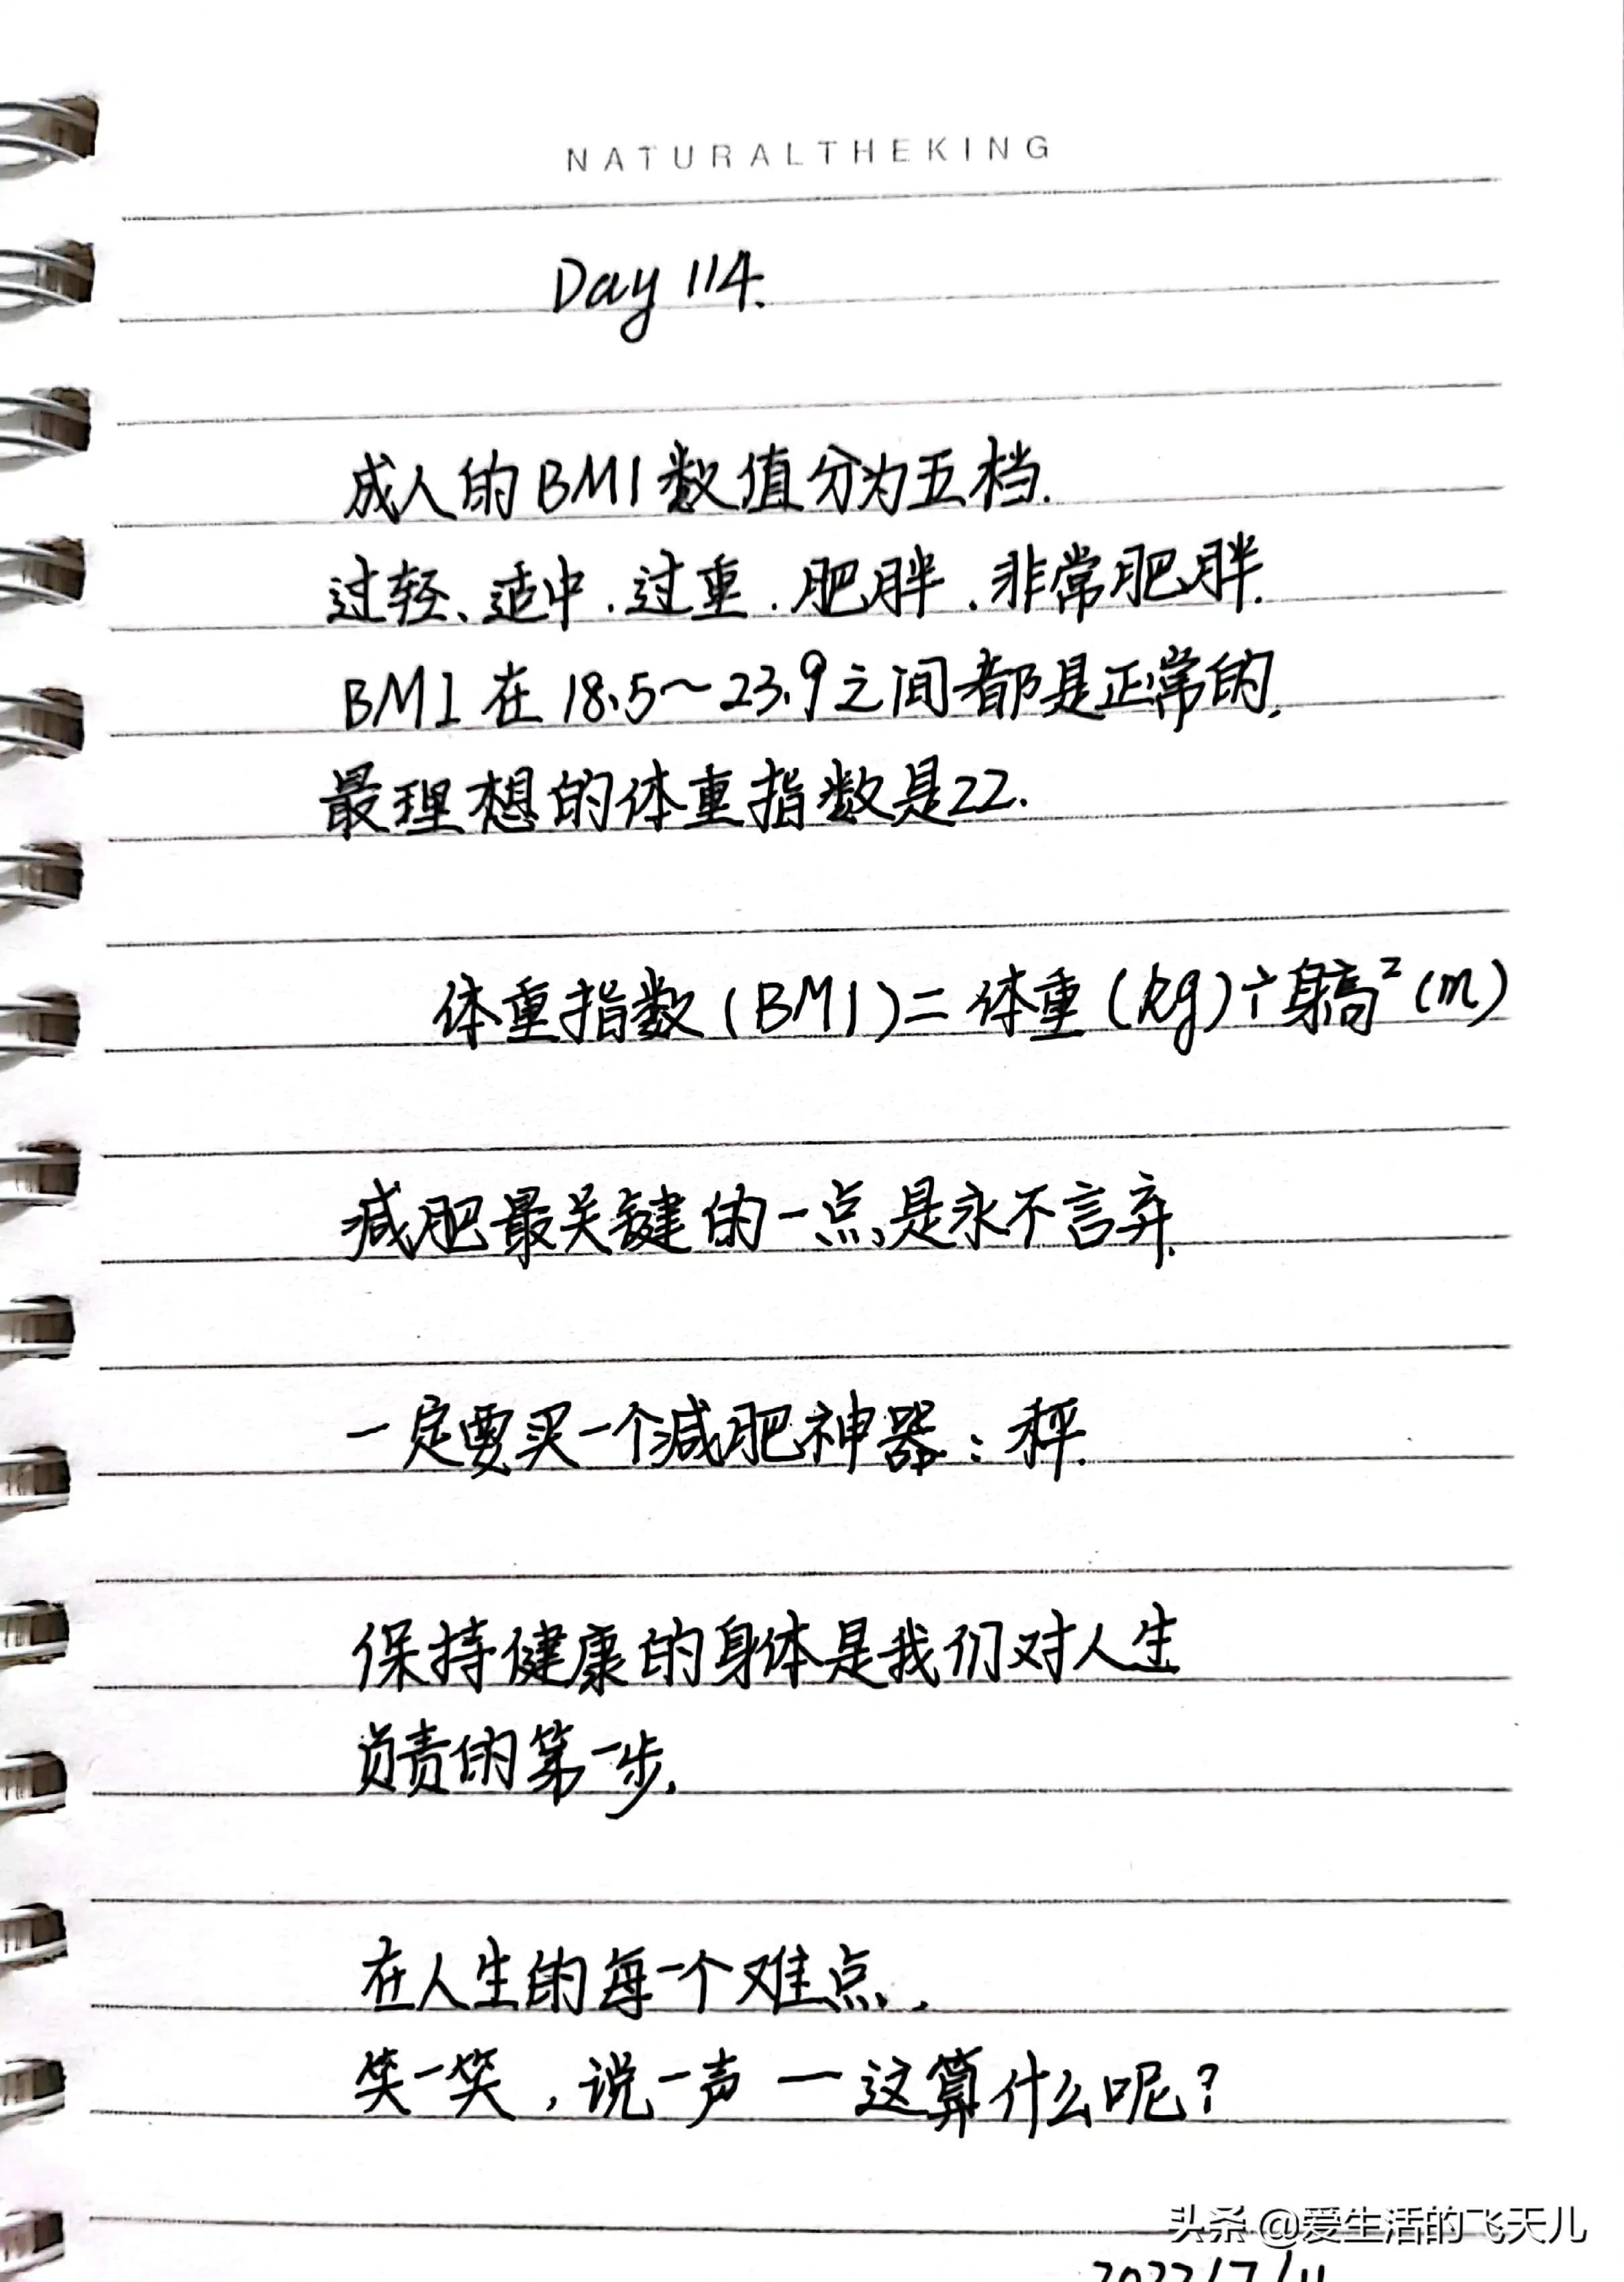 NATURALTHEKING
Day 114.
成人的BMI数值分为五档.
过轻、适中.过重.肥胖.非常肥胖.
BMI在18.5～23.9之间都是正常的.
最理想的体重指数是22.
体重指数(BMI)=体重(kg)÷身高²(m)
减肥最关键的一点是永不言弃.
一定要买一个减肥神器:秤.
保持健康的身体是我们对人生
负责的第一步.
在人生的每一个难点.
笑一笑,说一声一这算什么呢?
头条 @爱生活的飞天儿